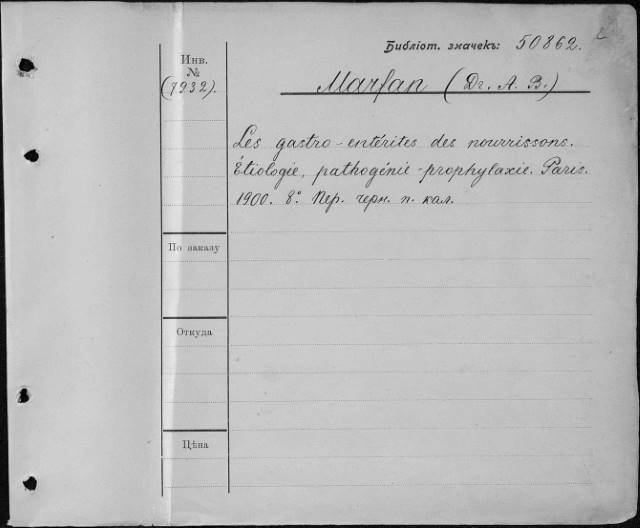 Библіот. значекъ: 50862.
Инв.
№
(7232).
Marfan (Dr. A. B.)
Les gastro-entérites des nourrissons.
Étiologie, pathogénie-prophylaxie. Paris.
1900. 8°. Пер. черн. п. кал.
По заказу
Откуда
Цѣна